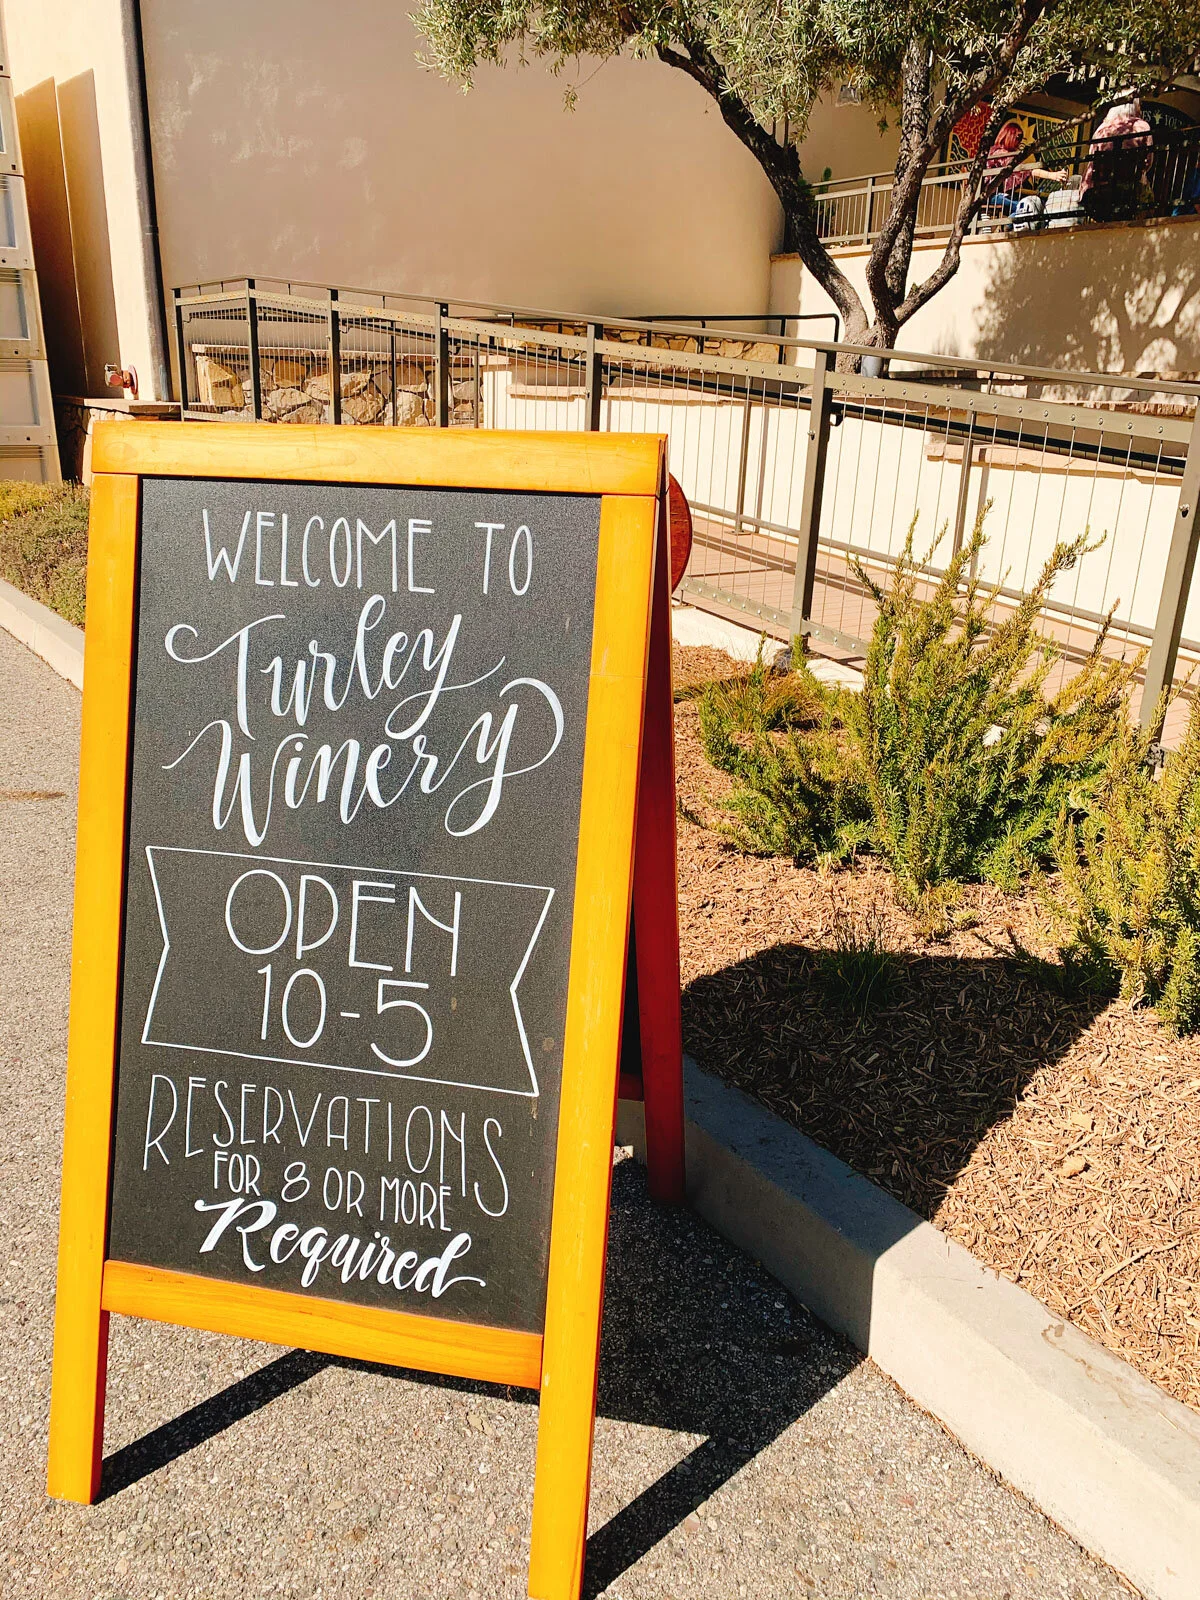 WELCOME TO
Turley
Winery
OPEN
10-5
RESERVATIONS
FOR 8 OR MORE
Required